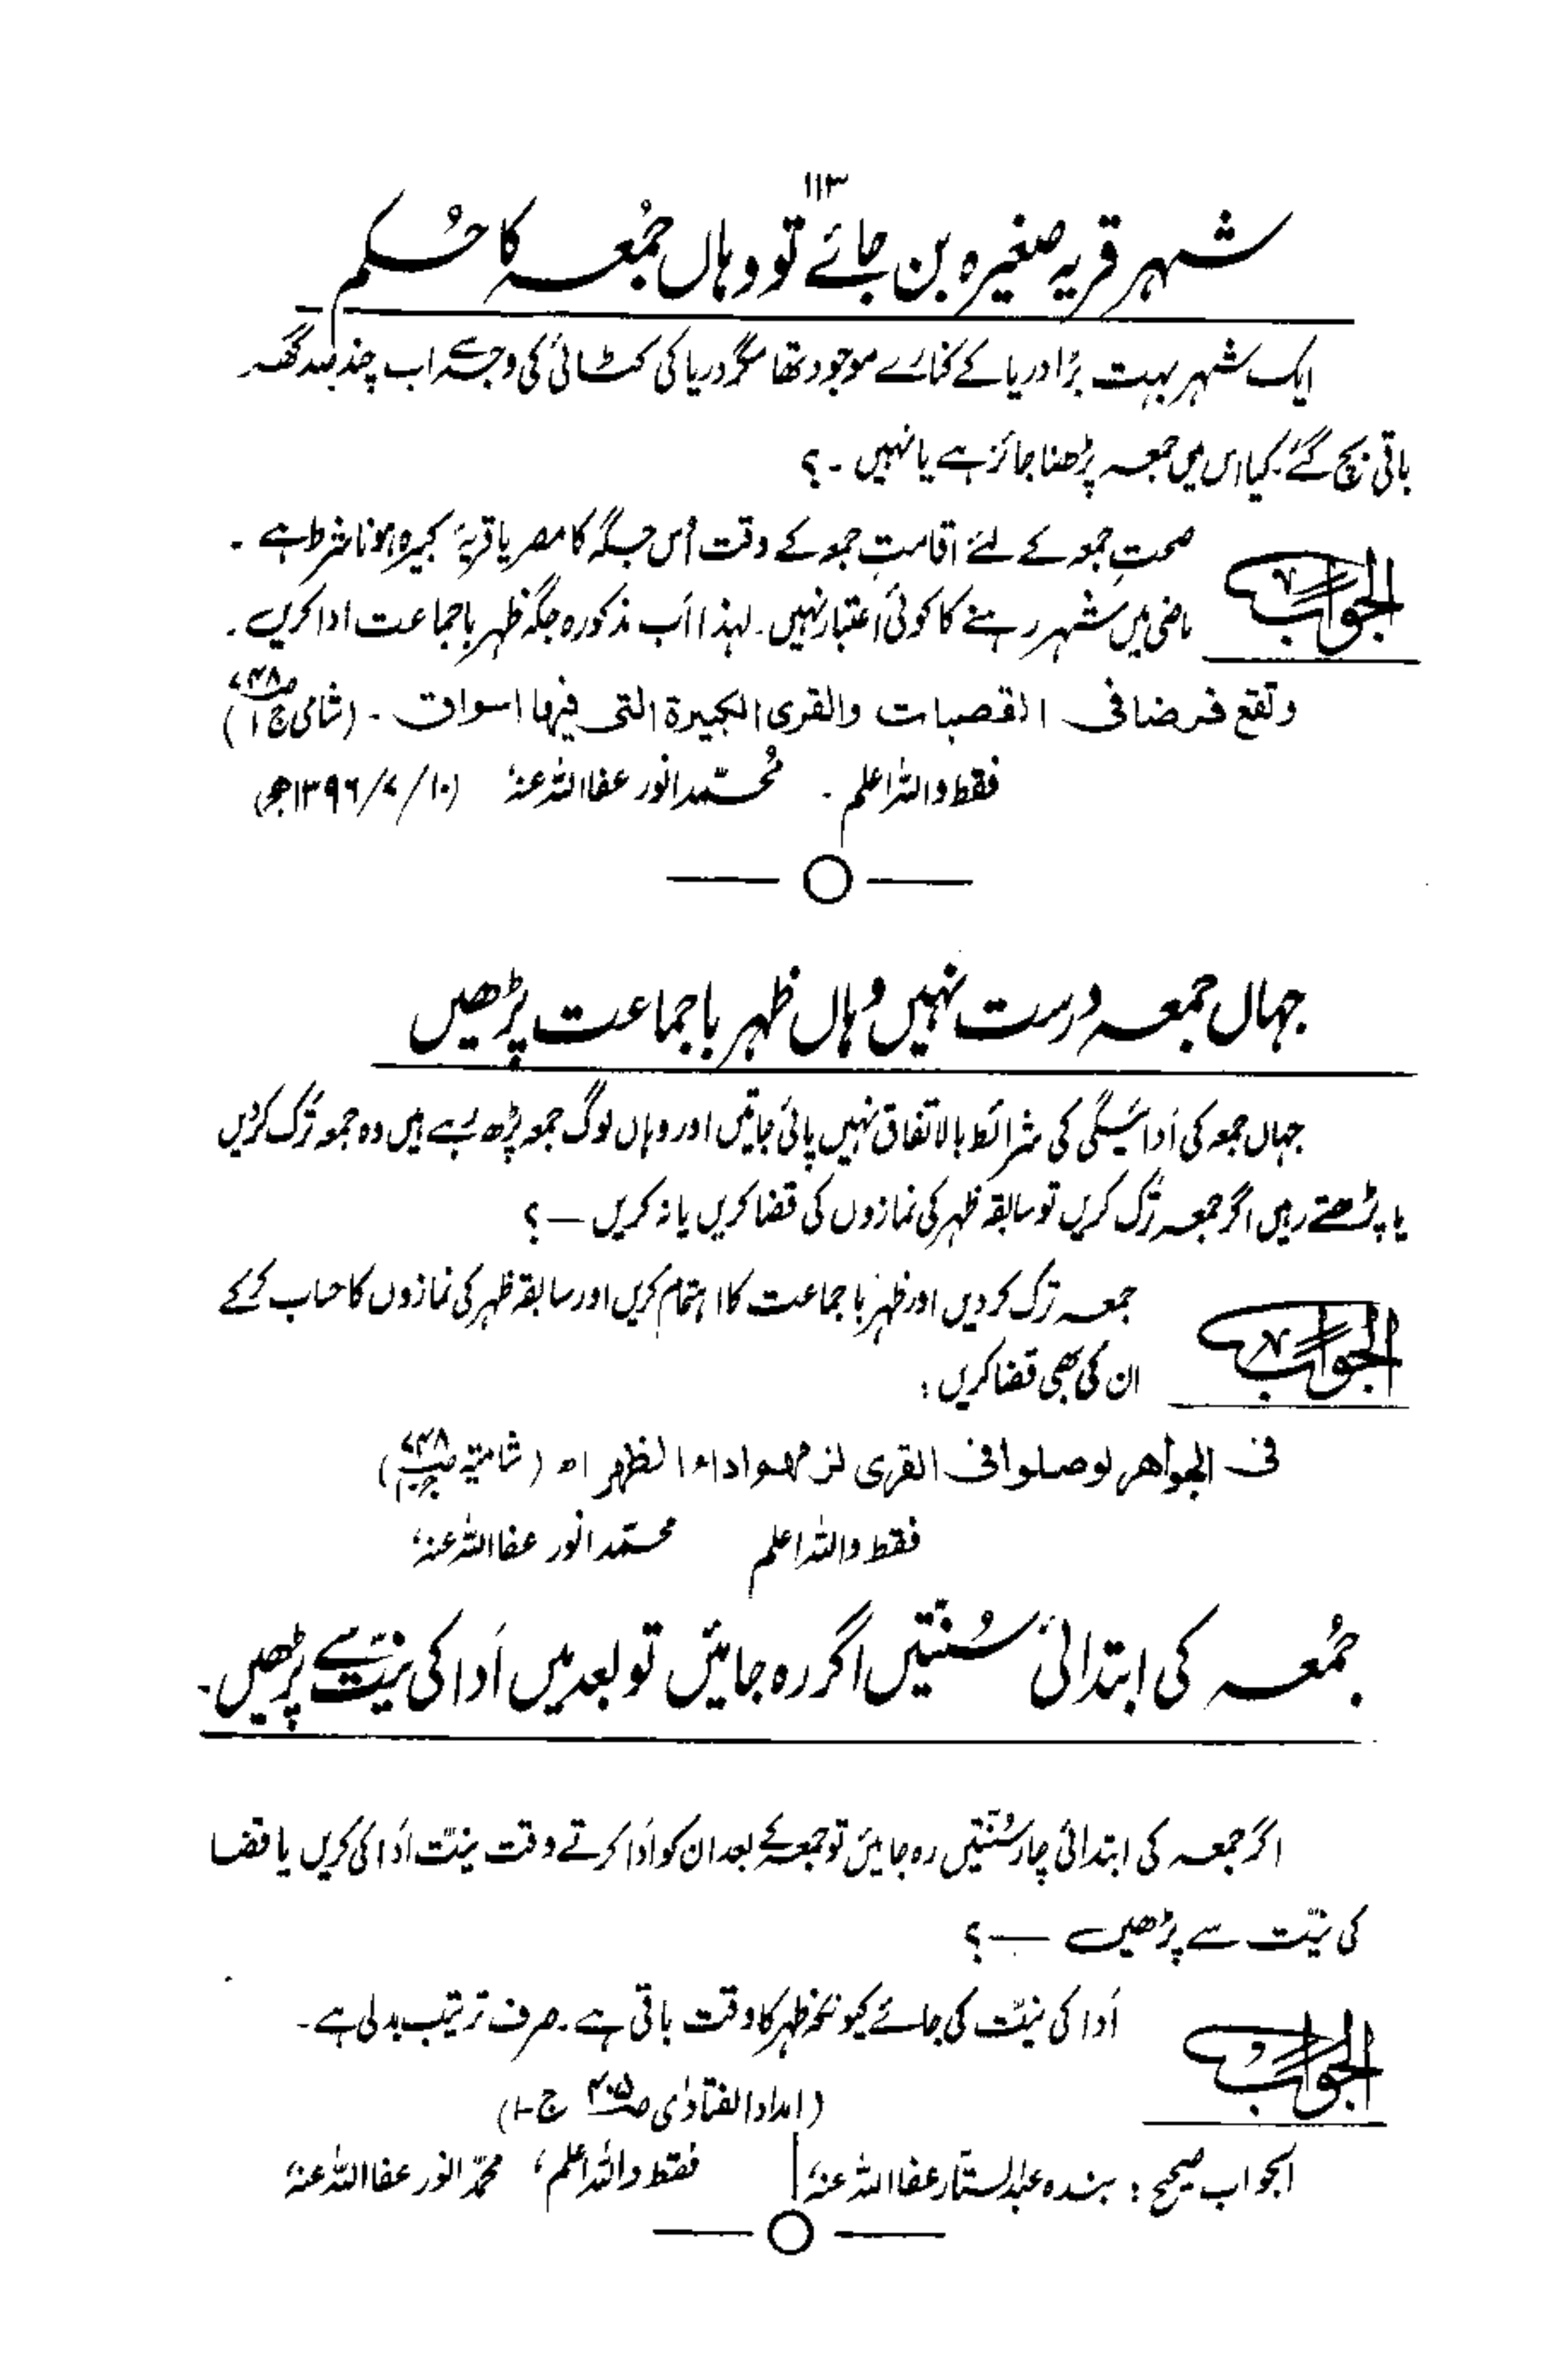 ۱۱۳
شہر قریہ صغیرہ بن جائے تو وہاں جُمعہ کا حُکم
ایک شہر بہت بڑا دریا کے کنارے موجود تھا مگر دریا کی کٹائی کی وجہ سے اب چند گھر
باقی بچ گئے کیا اس میں جمعہ پڑھنا جائز ہے یا نہیں ۔ ؟
صحتِ جمعہ کے لئے اقامتِ جمعہ کے وقت اُس جگہ کا مصر یا قریۂ کبیرہ ہونا شرط ہے ۔
الجواب
ماضی میں شہر رہنے کا کوئی اعتبار نہیں ۔ لہذا اَب مذکورہ جگہ ظہر باجماعت ادا کریں ۔
وتقع فرضا فی القصبات والقری الکبیرة التی فیہا اسواق ۔ (شامی ج۱ ص۷۴۸)
فقط واللہ اعلم ۔ مُحمّد انور عفا اللہ عنہ (۱۰/۷/۱۳۹۶ھ)
جہاں جمعہ درست نہیں وہاں ظہر باجماعت پڑھیں
جہاں جمعہ کی اَدائیگی کی شرائط بالاتفاق نہیں پائی جاتیں اور وہاں لوگ جمعہ پڑھ رہے ہیں وہ جمعہ ترک کر دیں
یا پڑھتے رہیں اگر جمعہ ترک کریں تو سابقہ ظہر کی نمازوں کی قضا کریں یا نہ کریں — ؟
جمعہ ترک کر دیں اور ظہر با جماعت کا اہتمام کریں اور سابقہ ظہر کی نمازوں کا حساب کر کے
الجواب
ان کی بھی قضا کریں :
فی الجواھر لو صلوا فی القری لزمھم اداء الظھر اھ (شامیہ ص۷۴۸)
فقط واللہ اعلم محمّد انور عفا اللہ عنہ
جُمعہ کی ابتدائی سُنّتیں اگر رہ جائیں تو بعد میں اَدا کی نیّت سے پڑھیں ۔
اگر جمعہ کی ابتدائی چار سُنّتیں رہ جائیں تو جمعہ کے بعد ان کو اَدا کرتے وقت نیّت اَدا کی کریں یا قضا
کی نیّت سے پڑھیں — ؟
اَدا کی نیّت کی جائے کیونکہ ظہر کا وقت باقی ہے ۔ صرف ترتیب بدلی ہے ۔
الجواب
(امداد الفتاوٰی ص۴۰۵ ج۔۱)
الجواب صحیح : بندہ عبدالستار عفا اللہ عنہ | فقط واللہ اعلم ، محمّد انور عفا اللہ عنہ